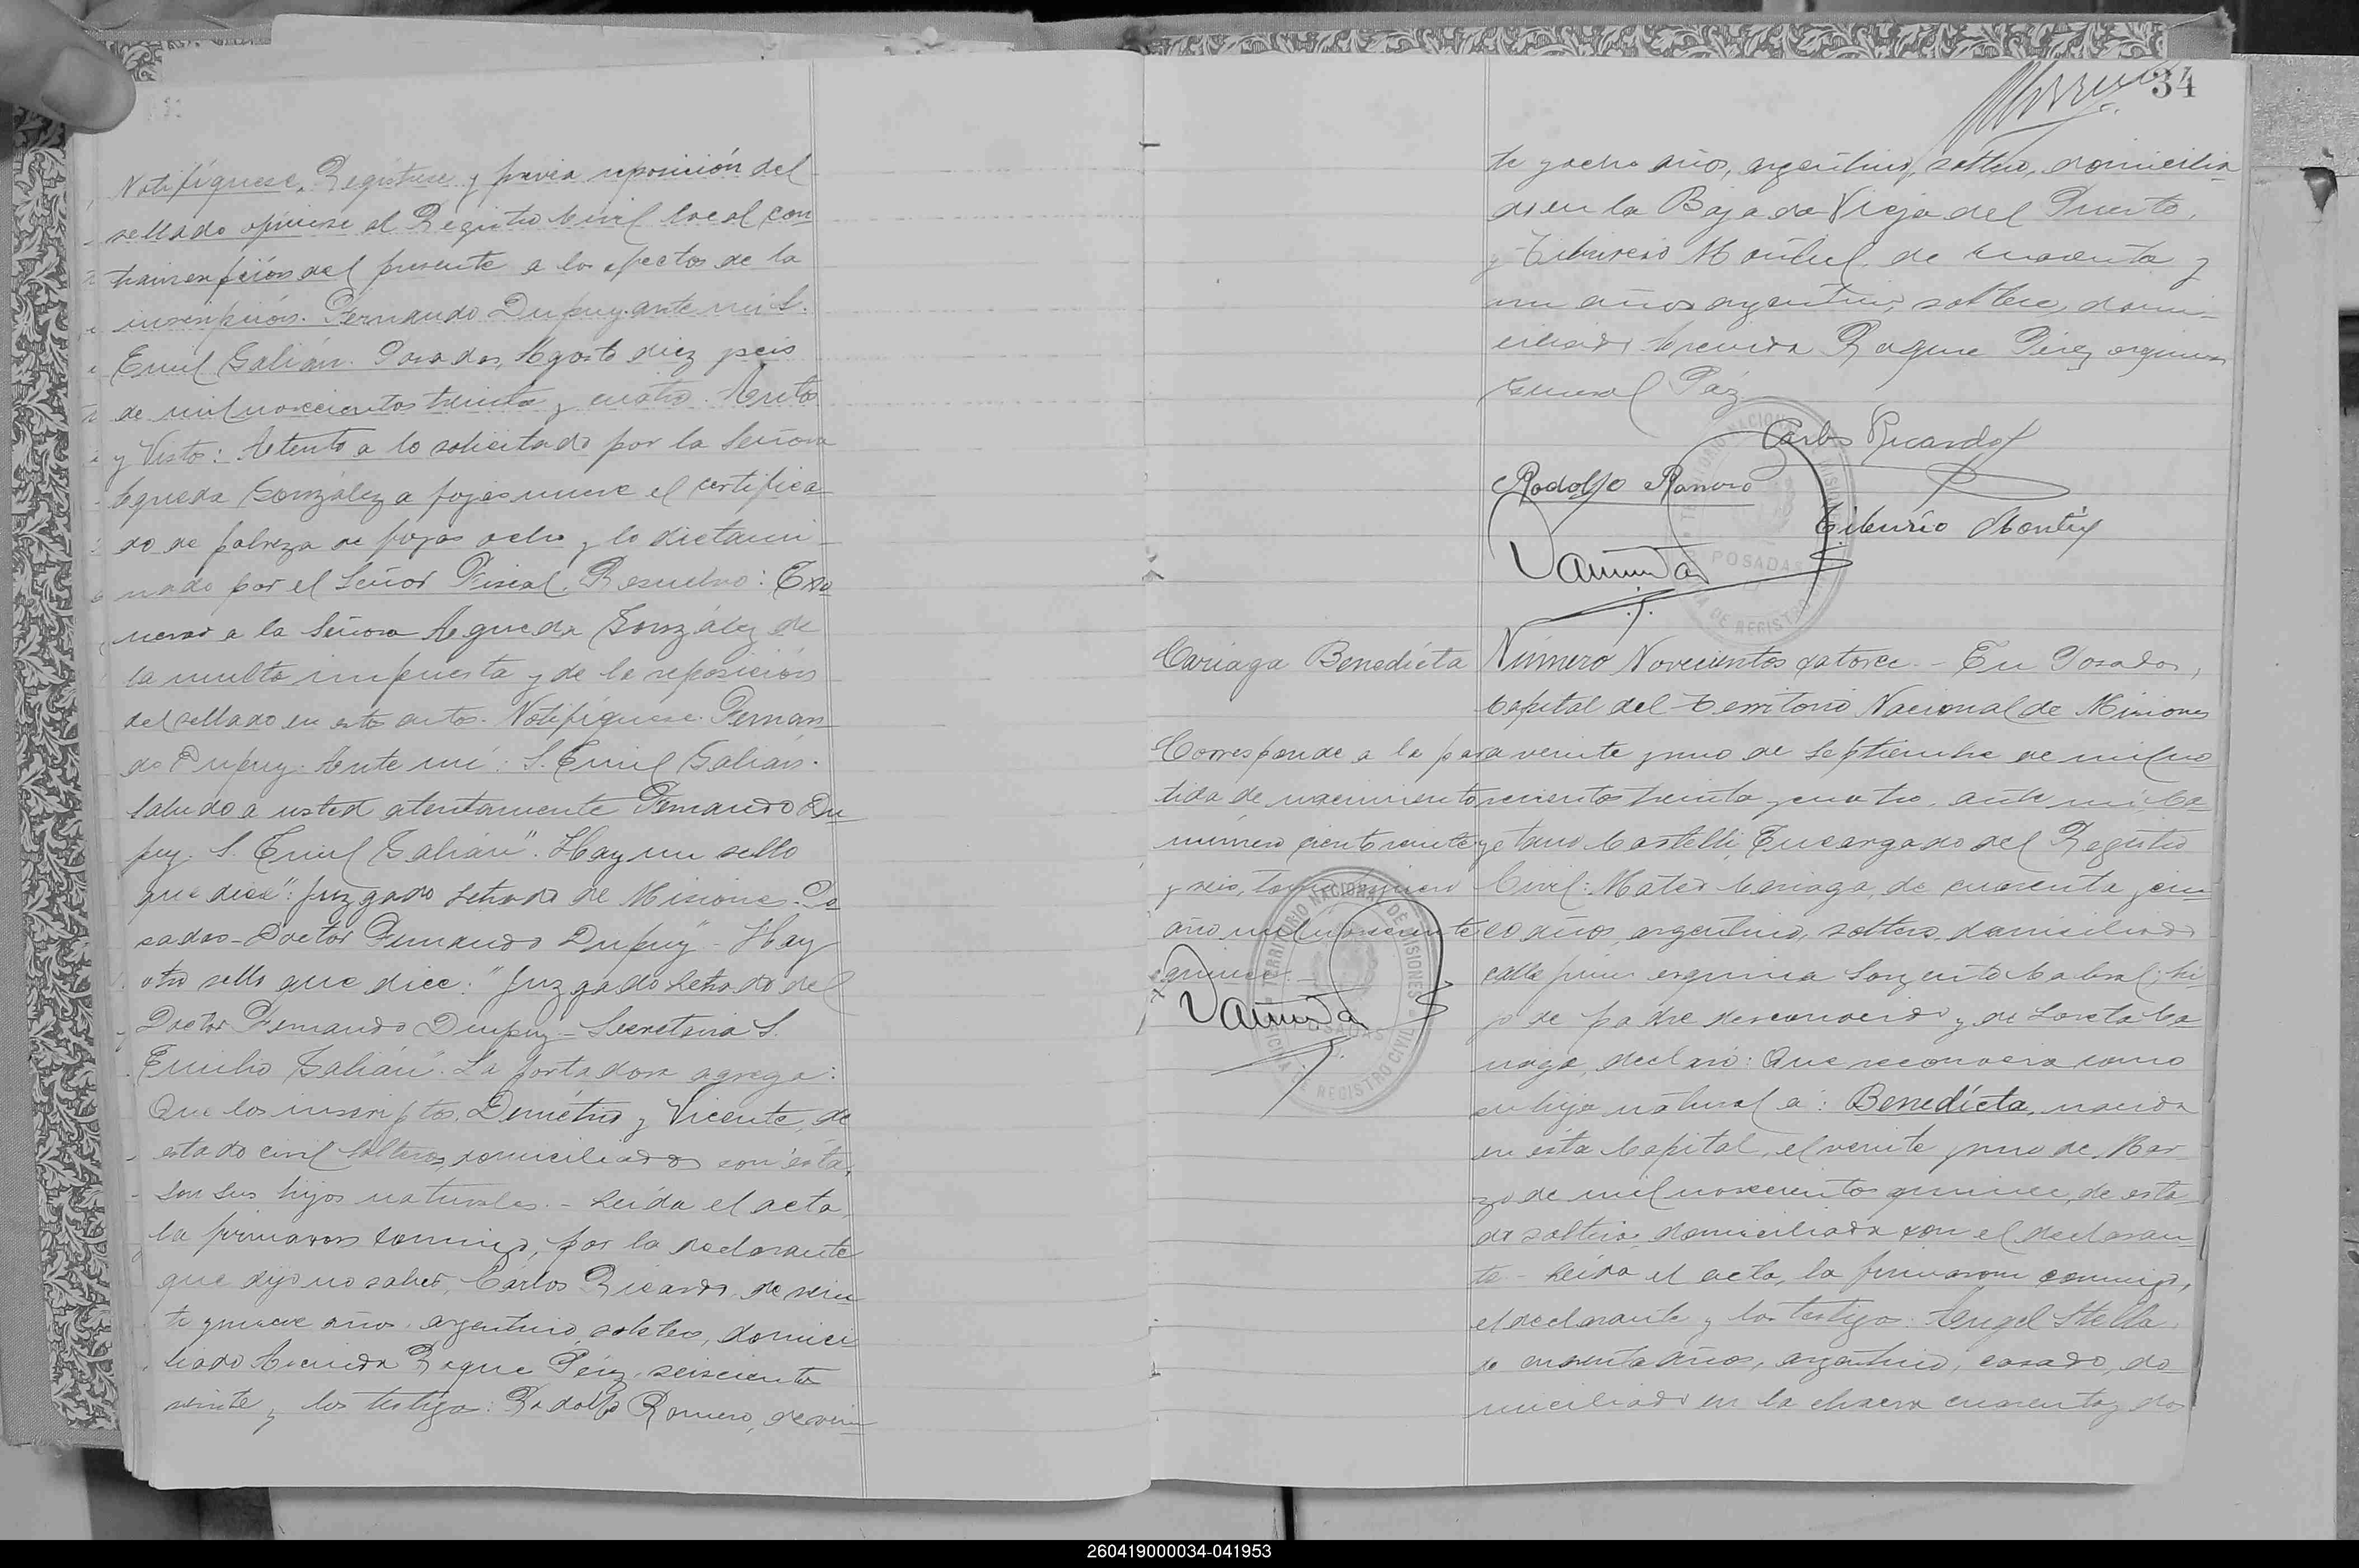 Notifíquese, Regístrese y previa reposición del
sellado ofíciese al Registro Civil local con
transcripción del presente a los efectos de la
inscripción. Fernando Dupuy. ante mi S.
Emil Galián. Posadas, Agosto diez y seis
de mil novecientos treinta y cuatro. Autos
y Vistos: Atento a lo solicitado por la Señora
Agueda González a fojas nueve el certifica
do de pobreza de fojas ocho y lo dictami
nado por el Señor Fiscal. Resuelvo: Exo
nerar a la Señora Agueda González de
la multa impuesta y de la reposición
del sellado en estos autos. Notifíquese. Fernan
do Dupuy. Ante mí: S. Emil Galián.
Saludo a usted atentamente Fernando Du
puy. S. Emil Galián". Hay un sello
que dice": Juzgado Letrado de Misiones. Po
sadas - Doctor Fernando Dupuy" - Hay
otro sello que dice: "Juzgado Letrado del
Doctor Fernando Dupuy - Secretaria S.
Emilio Galián". La portadora agrega:
Que los inscriptos, Demétrio y Vicente, de
estado civil solteros, domiciliados con ésta,
son sus hijos naturales. - Leída el acta,
la firmaron conmigo, por la declarante
que dijo no saber, Cárlos Ricardo, de vein
te y nueve años, argentino, soltero, domici
liado Avenida Roque Pérez seiscientos
veinte y los testigos: Rodolfo Romero, de vein
34
te y ocho años, argentino, soltero, domicilia
do en la Bajada Vieja del Puerto,
y Tiburcio Montiel de cuarenta y
un años argentino, soltero, domi
ciliado Avenida Roque Pérez esquina
General Paz
Carlos Ricardo
Rodolfo Romero
Tiburcio Montiel
POSADAS
Cariaga Benedícta
Corresponde a la par
tida de nacimiento
número ciento veinte
y seis, tomo primero
año mil novecientos
quince. -
TERRITORIO NACIONAL DE MISIONES
POSADAS
OFICINA DE REGISTRO CIVIL
Número Novecientos catorce. - En Posadas,
Capital del Territorio Nacional de Misiones
a veinte y uno de Septiembre de mil no
vecientos treinta y cuatro, ante mí, Ca
yetano Castelli, Encargado del Registro
Civil: Mateo Cariaga, de cuarenta y cin
co años, argentino, soltero, domiciliado
calle Junin esquina Sargento Cabral, hi
jo de padre desconocido y de Loreta Ca
riaga, declaró: Que reconocía como
su hija natural a: Benedícta, nacida
en ésta Capital, el veinte y uno de Mar
zo de mil novecientos quince, de esta
do soltera, domiciliada con el declaran
te - Leída el acta, la firmaron conmigo,
el declarante y los testigos: Angel Stella,
de cuarenta años, argentino, casado, do
miciliado en la chacra cuarenta y dos
260419000034-041953